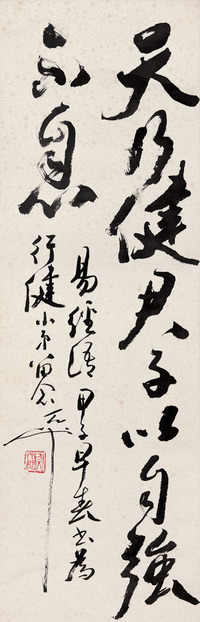 天行健君子以自強
不息
易經語甲子早春書為
行健小弟留念